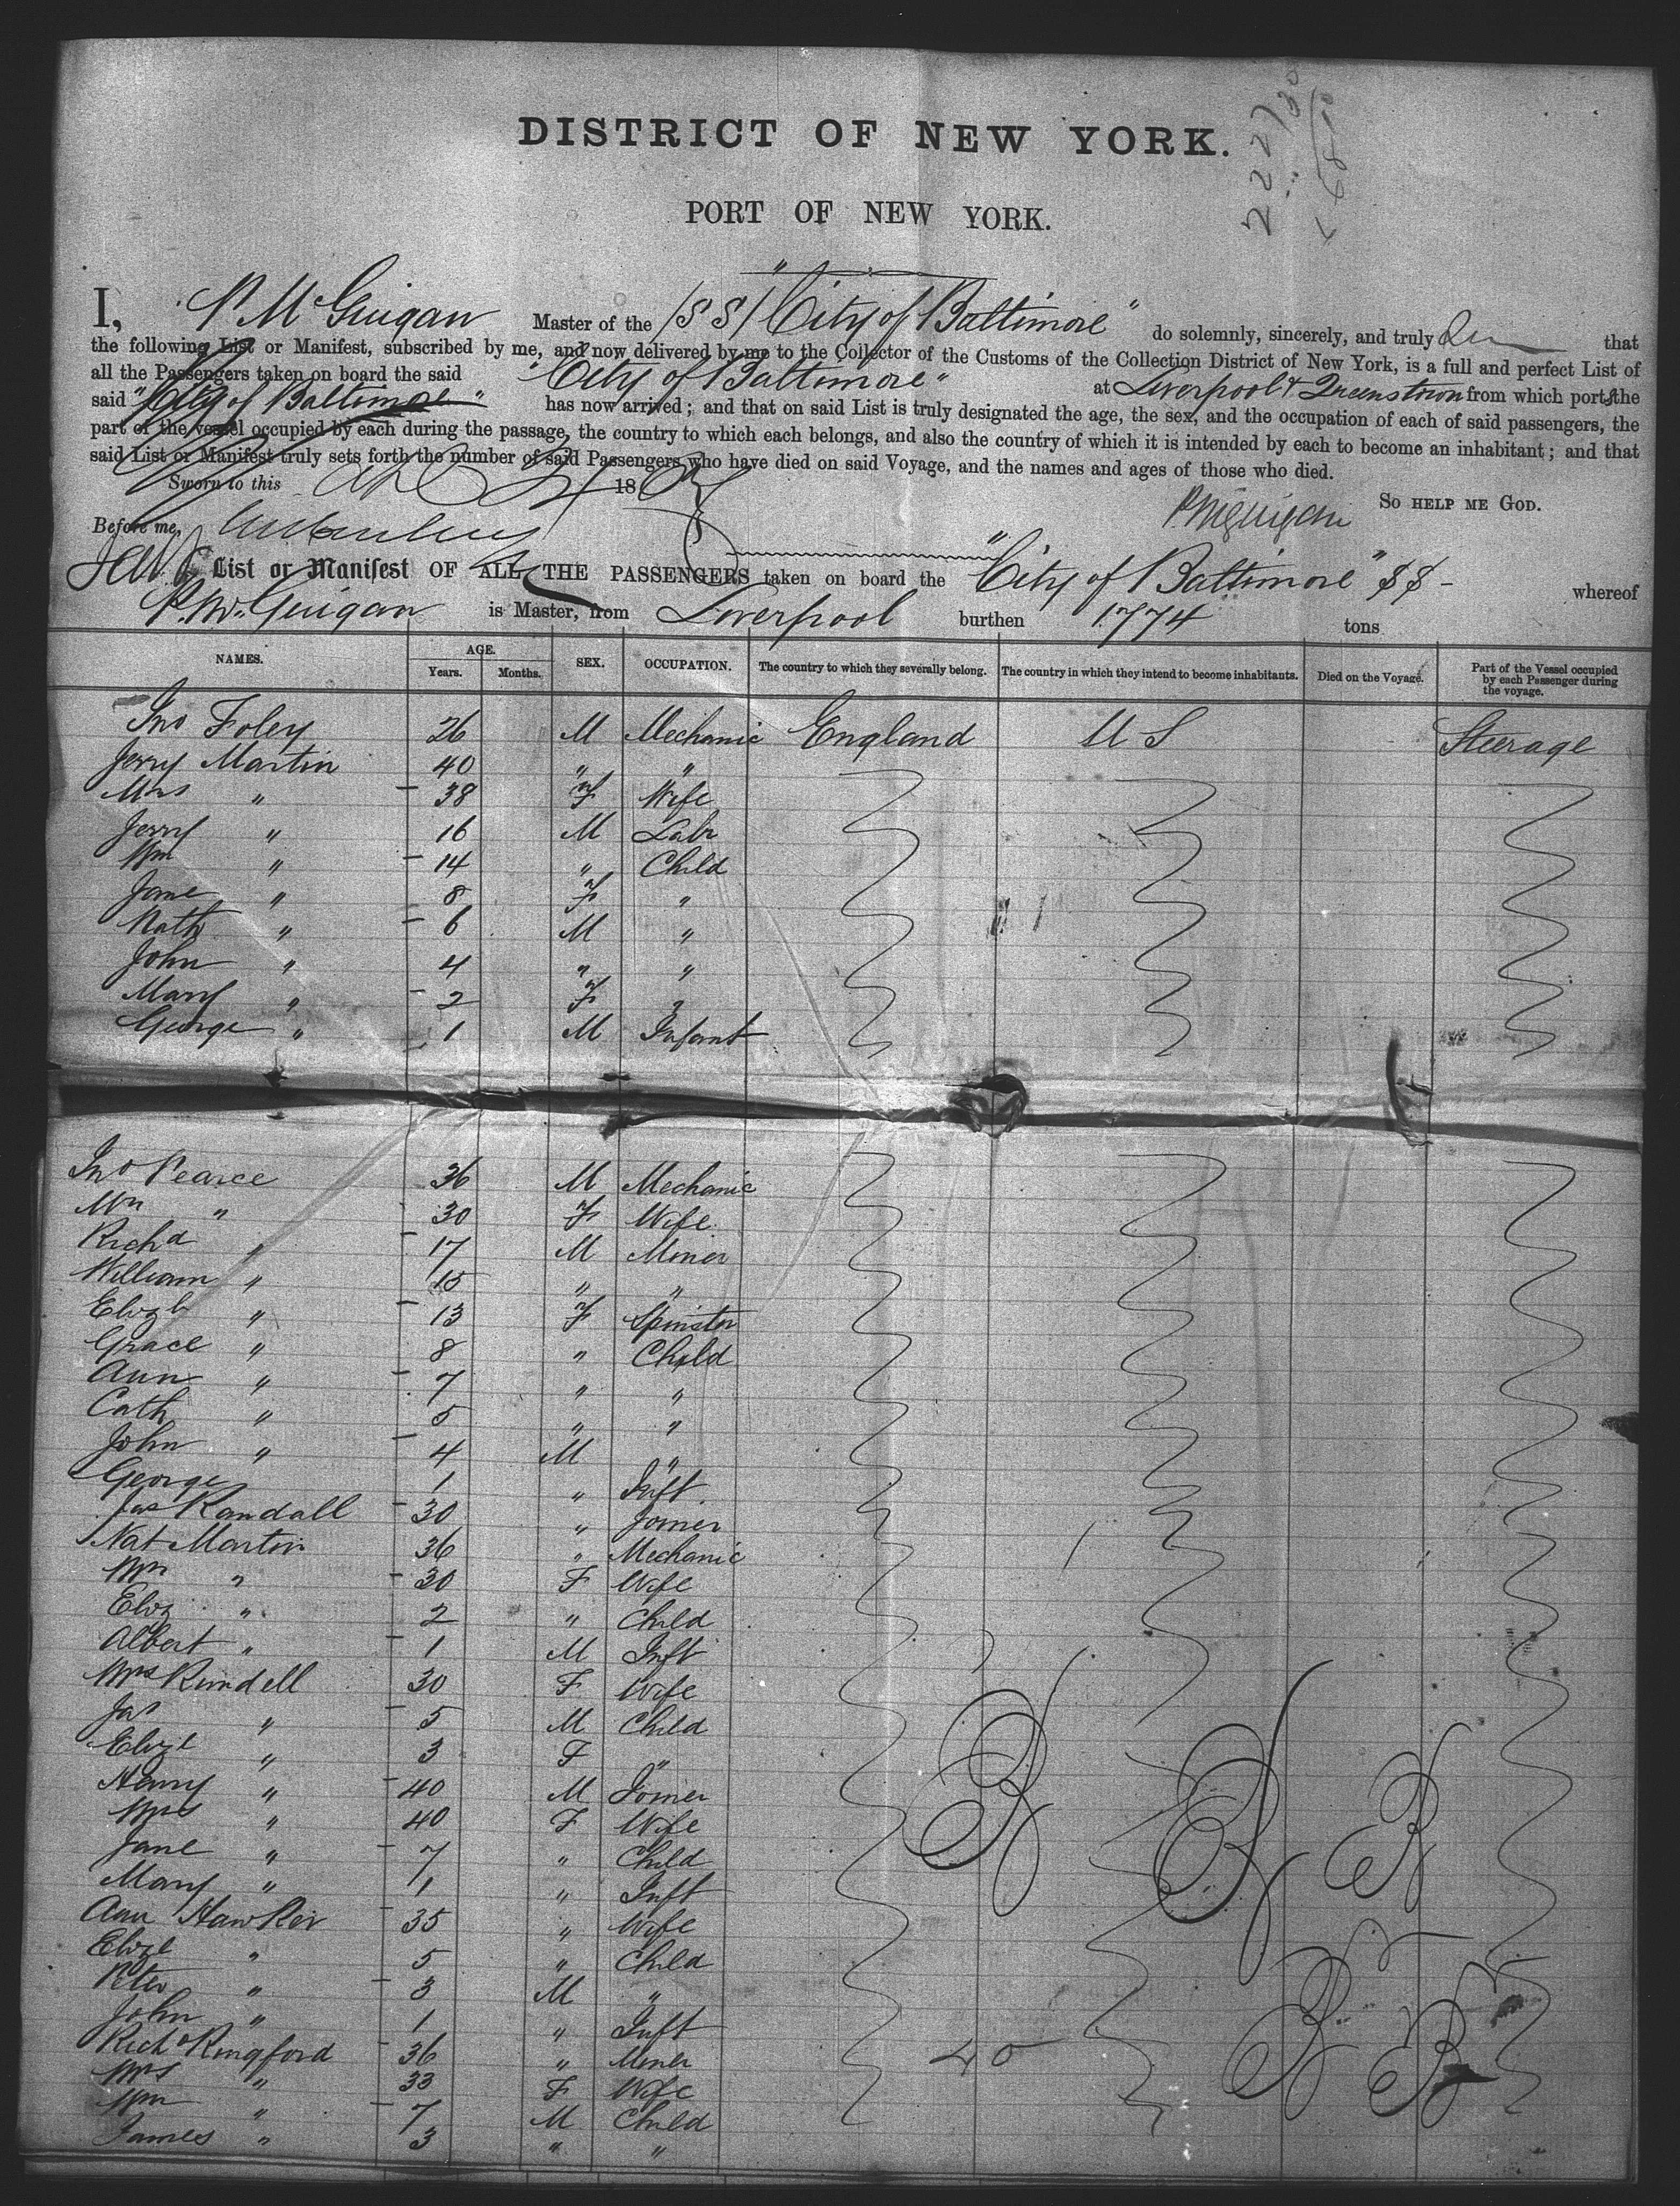 DISTRICT OF NEW YORK.
PORT OF NEW YORK.
I, P. McGuigan Master of the (SS) "City of Baltimore" do solemnly, sincerely, and truly that
the following List or Manifest, subscribed by me, and now delivered by me to the Collector of the Customs of the Collection District of New York, is a full and perfect List of
all the Passengers taken on board the said "City of Baltimore" at Liverpool & Queenstown from which ports the
said "City of Baltimore" has now arrived; and that on said List is truly designated the age, the sex, and the occupation of each of said passengers, the
part of the vessel occupied by each during the passage, the country to which each belongs, and also the country of which it is intended by each to become an inhabitant; and that
said List or Manifest truly sets forth the number of said Passengers who have died on said Voyage, and the names and ages of those who died.
Sworn to this 18
P McGuigan SO HELP ME GOD.
Before me,
List or Manifest OF ALL THE PASSENGERS taken on board the "City of Baltimore" SS - whereof
P. McGuigan is Master, from Liverpool burthen 1774 tons
NAMES. AGE. Years. Months. SEX. OCCUPATION. The country to which they severally belong. The country in which they intend to become inhabitants. Died on the Voyage. Part of the Vessel occupied by each Passenger during the voyage.
Jno Foley 26 M Mechanic England U S Steerage
Jerry Martin 40 " "
Mrs " 38 F Wife
Jerry " 16 M Labr
Wm " 14 " Child
Jane " 8 F "
Nath " 6 M "
John " 4 " "
Mary " 2 F "
George " 1 M Infant
Jno Pearce 36 M Mechanic
Mrs " 30 F Wife
Richd " 17 M Miner
William " 15 " "
Elizb " 13 F Spinster
Grace " 8 " Child
Ann " 7 " "
Cath " 5 " "
John " 4 M "
George 1 " Inft.
Jas Randall 30 " Joiner
Nat Martin 36 " Mechanic
Mrs " 30 F Wife
Eliz " 2 " Child
Albert " 1 M Inft
Mrs Rundell 30 F Wife
Jas " 5 M Child
Elizb " 3 F "
Henry " 40 M Joiner
Mrs " 40 F Wife
Jane " 7 " Child
Mary " 1 " Inft
Ann Hawker 35 " Wife
Elizb " 5 " Child
Peter " 3 M "
John " 1 " Inft
Richd Kingford 36 " Miner
Mrs " 33 F Wife
Wm " 7 M Child
James " 3 " "
40